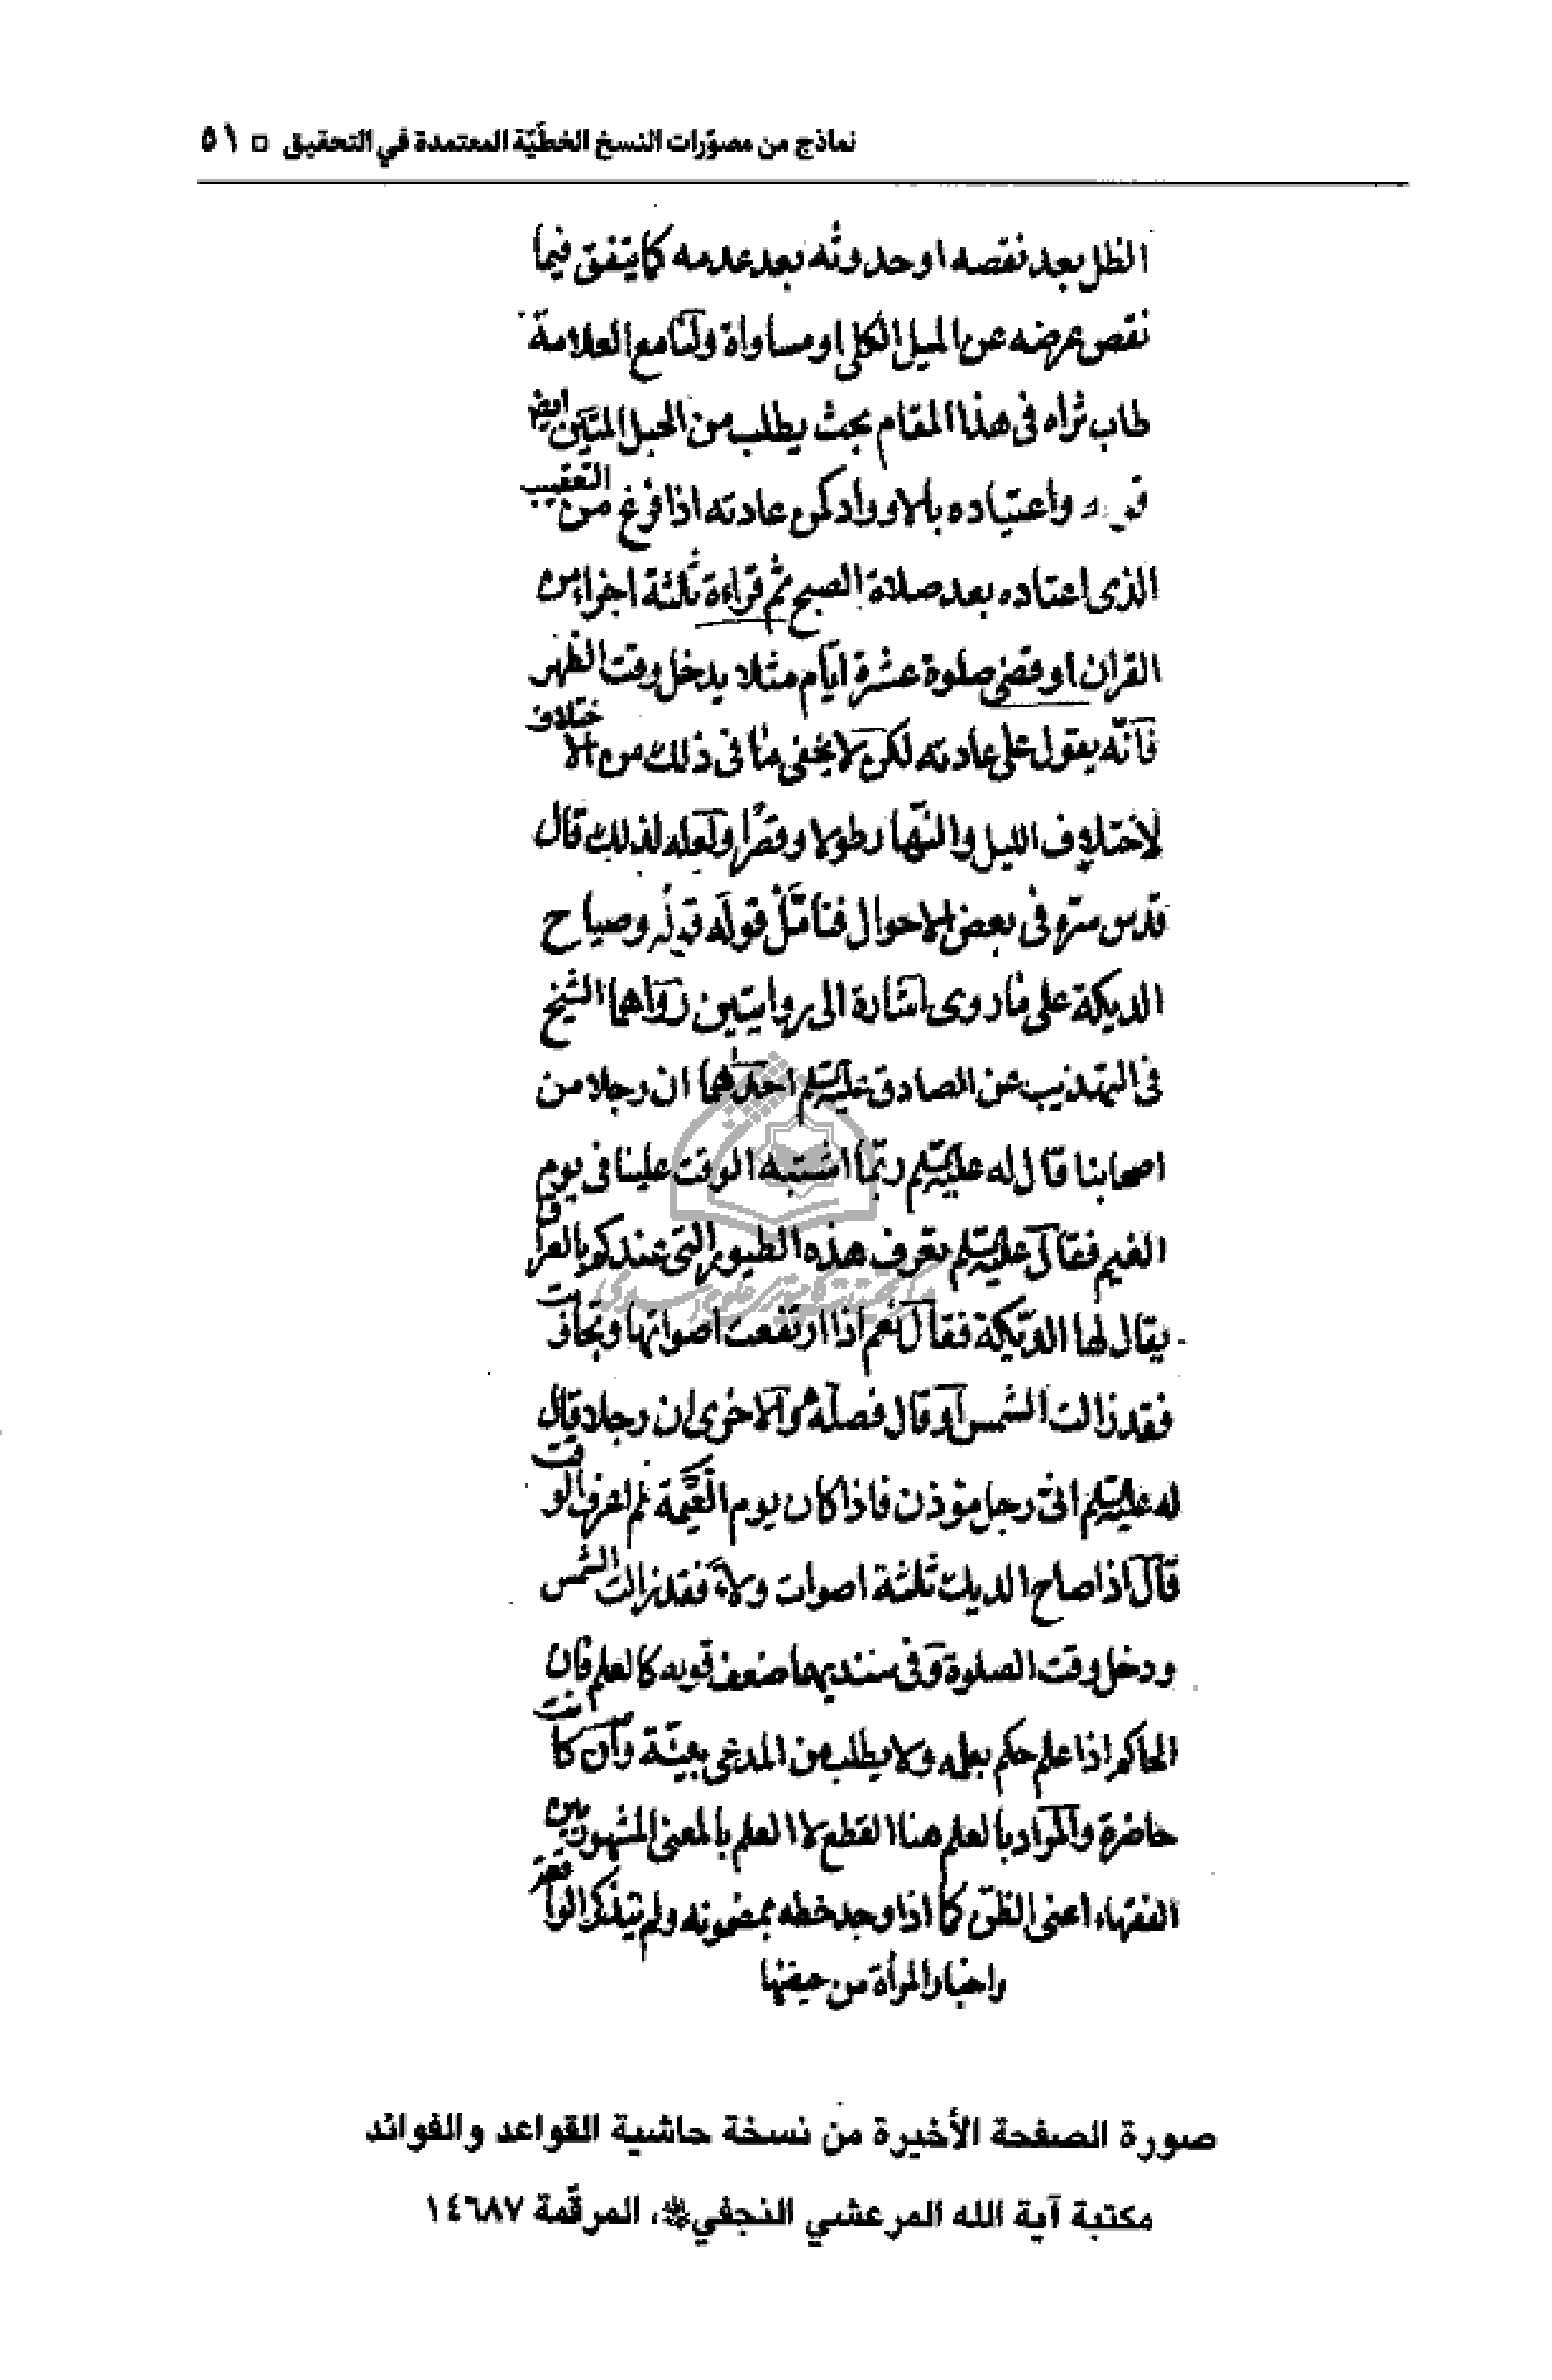 نماذج من مصوّرات النسخ الخطّيّة المعتمدة في التحقيق □ ٥١
الظل بعد نقصه او حدوثه بعد عدمه كما يتفق فيما
نقص عرضه عن الميل الكلي او مساواة ولنا مع العلامة
طاب ثراه في هذا المقام بحث يطلب من الحبل المتين ايض
واعتياده بالاوراد كمن عادته اذا فرغ من التعقيب
الذى اعتاده بعد صلاة الصبح ثم قراءة ثلثة اجزاء من
القران او قضى صلوة عشرة ايّام مثلا يدخل وقت الظهر
فانّه يعوّل على عادته لكن لا يخفى ما في ذلك من الاختلاف
لاختلاف الليل والنّهار طولا وقصرًا ولعله لذلك قال
قدس سرّه في بعض الاحوال فتأمّل قوله وصياح
الديكة على ما روى اشارة الى روايتين رواهما الشيخ
في التهذيب عن الصادق عليه السلم احدهما ان رجلا من
اصحابنا قال له عليه السلم ربّما اشتبه الوقت علينا في يوم
الغيم فقال عليه السلم تعرف هذه الطيور التي عندكم بالعراق
يقال لها الديّكة فقال نعم اذا ارتفعت اصواتها وتجاوبت
فقد زالت الشمس او قال فصلّه والاخرى ان رجلا قال
له عليه السلم انّى رجل مؤذن فاذا كان يوم الغيمة لم اعرف الوقت
قال اذا صاح الديك ثلثة اصوات ولاءً فقد زالت الشمس
ودخل وقت الصلوة وفي سنديهما ضعف قوله كالعلم فان
الحاكم اذا علم حكم بعلمه ولا يطلب من المدعى بيّنة وان كانت
حاضرة والمراد بالعلم هنا القطع لا العلم بالمعنى المشهور بين
الفقهاء اعنى الظنّ كما اذا وجد خطه بمضمونه ولم يتذكر الواقعة
واخبار المرأة من حيضها
صورة الصفحة الأخيرة من نسخة حاشية القواعد والفوائد
مكتبة آية الله المرعشي النجفي، المرقّمة ١٤٦٨٧